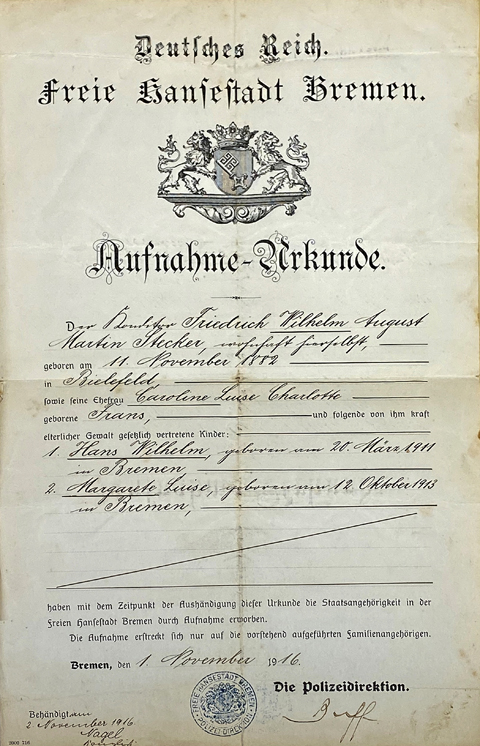 Deutsches Reich.
Freie Hansestadt Bremen.
Aufnahme-Urkunde.
Der Konditor Friedrich Wilhelm August
Martin Stecker, wohnhaft hierselbst,
geboren am 11. November 1882
in Bielefeld,
sowie seine Ehefrau Caroline Luise Charlotte
geborene Frans, und folgende von ihm kraft
elterlicher Gewalt gesetzlich vertretene Kinder:
1. Hans Wilhelm, geboren am 20. März 1911
in Bremen,
2. Margarete Luise, geboren am 12. Oktober 1913
in Bremen,
haben mit dem Zeitpunkt der Aushändigung dieser Urkunde die Staatsangehörigkeit in der
Freien Hansestadt Bremen durch Aufnahme erworben.
Die Aufnahme erstreckt sich nur auf die vorstehend aufgeführten Familienangehörigen.
Bremen, den 1. November 1916.
FREIE HANSESTADT BREMEN
POLIZEIDIREKTION
Die Polizeidirektion.
Behändigt am
2 November 1916
Nagel